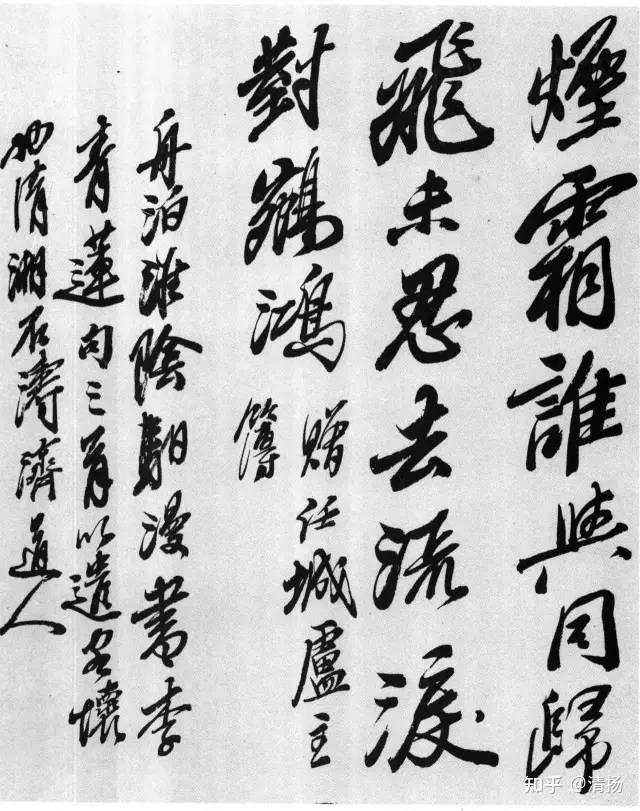 煙霜誰與同歸
飛未忍去流淚
對鵷鴻
贈任城盧主
簿
舟泊淮陰朝漫書李
青蓮句三首以遣客懷
清湘石濤濟道人
知乎 @清扬